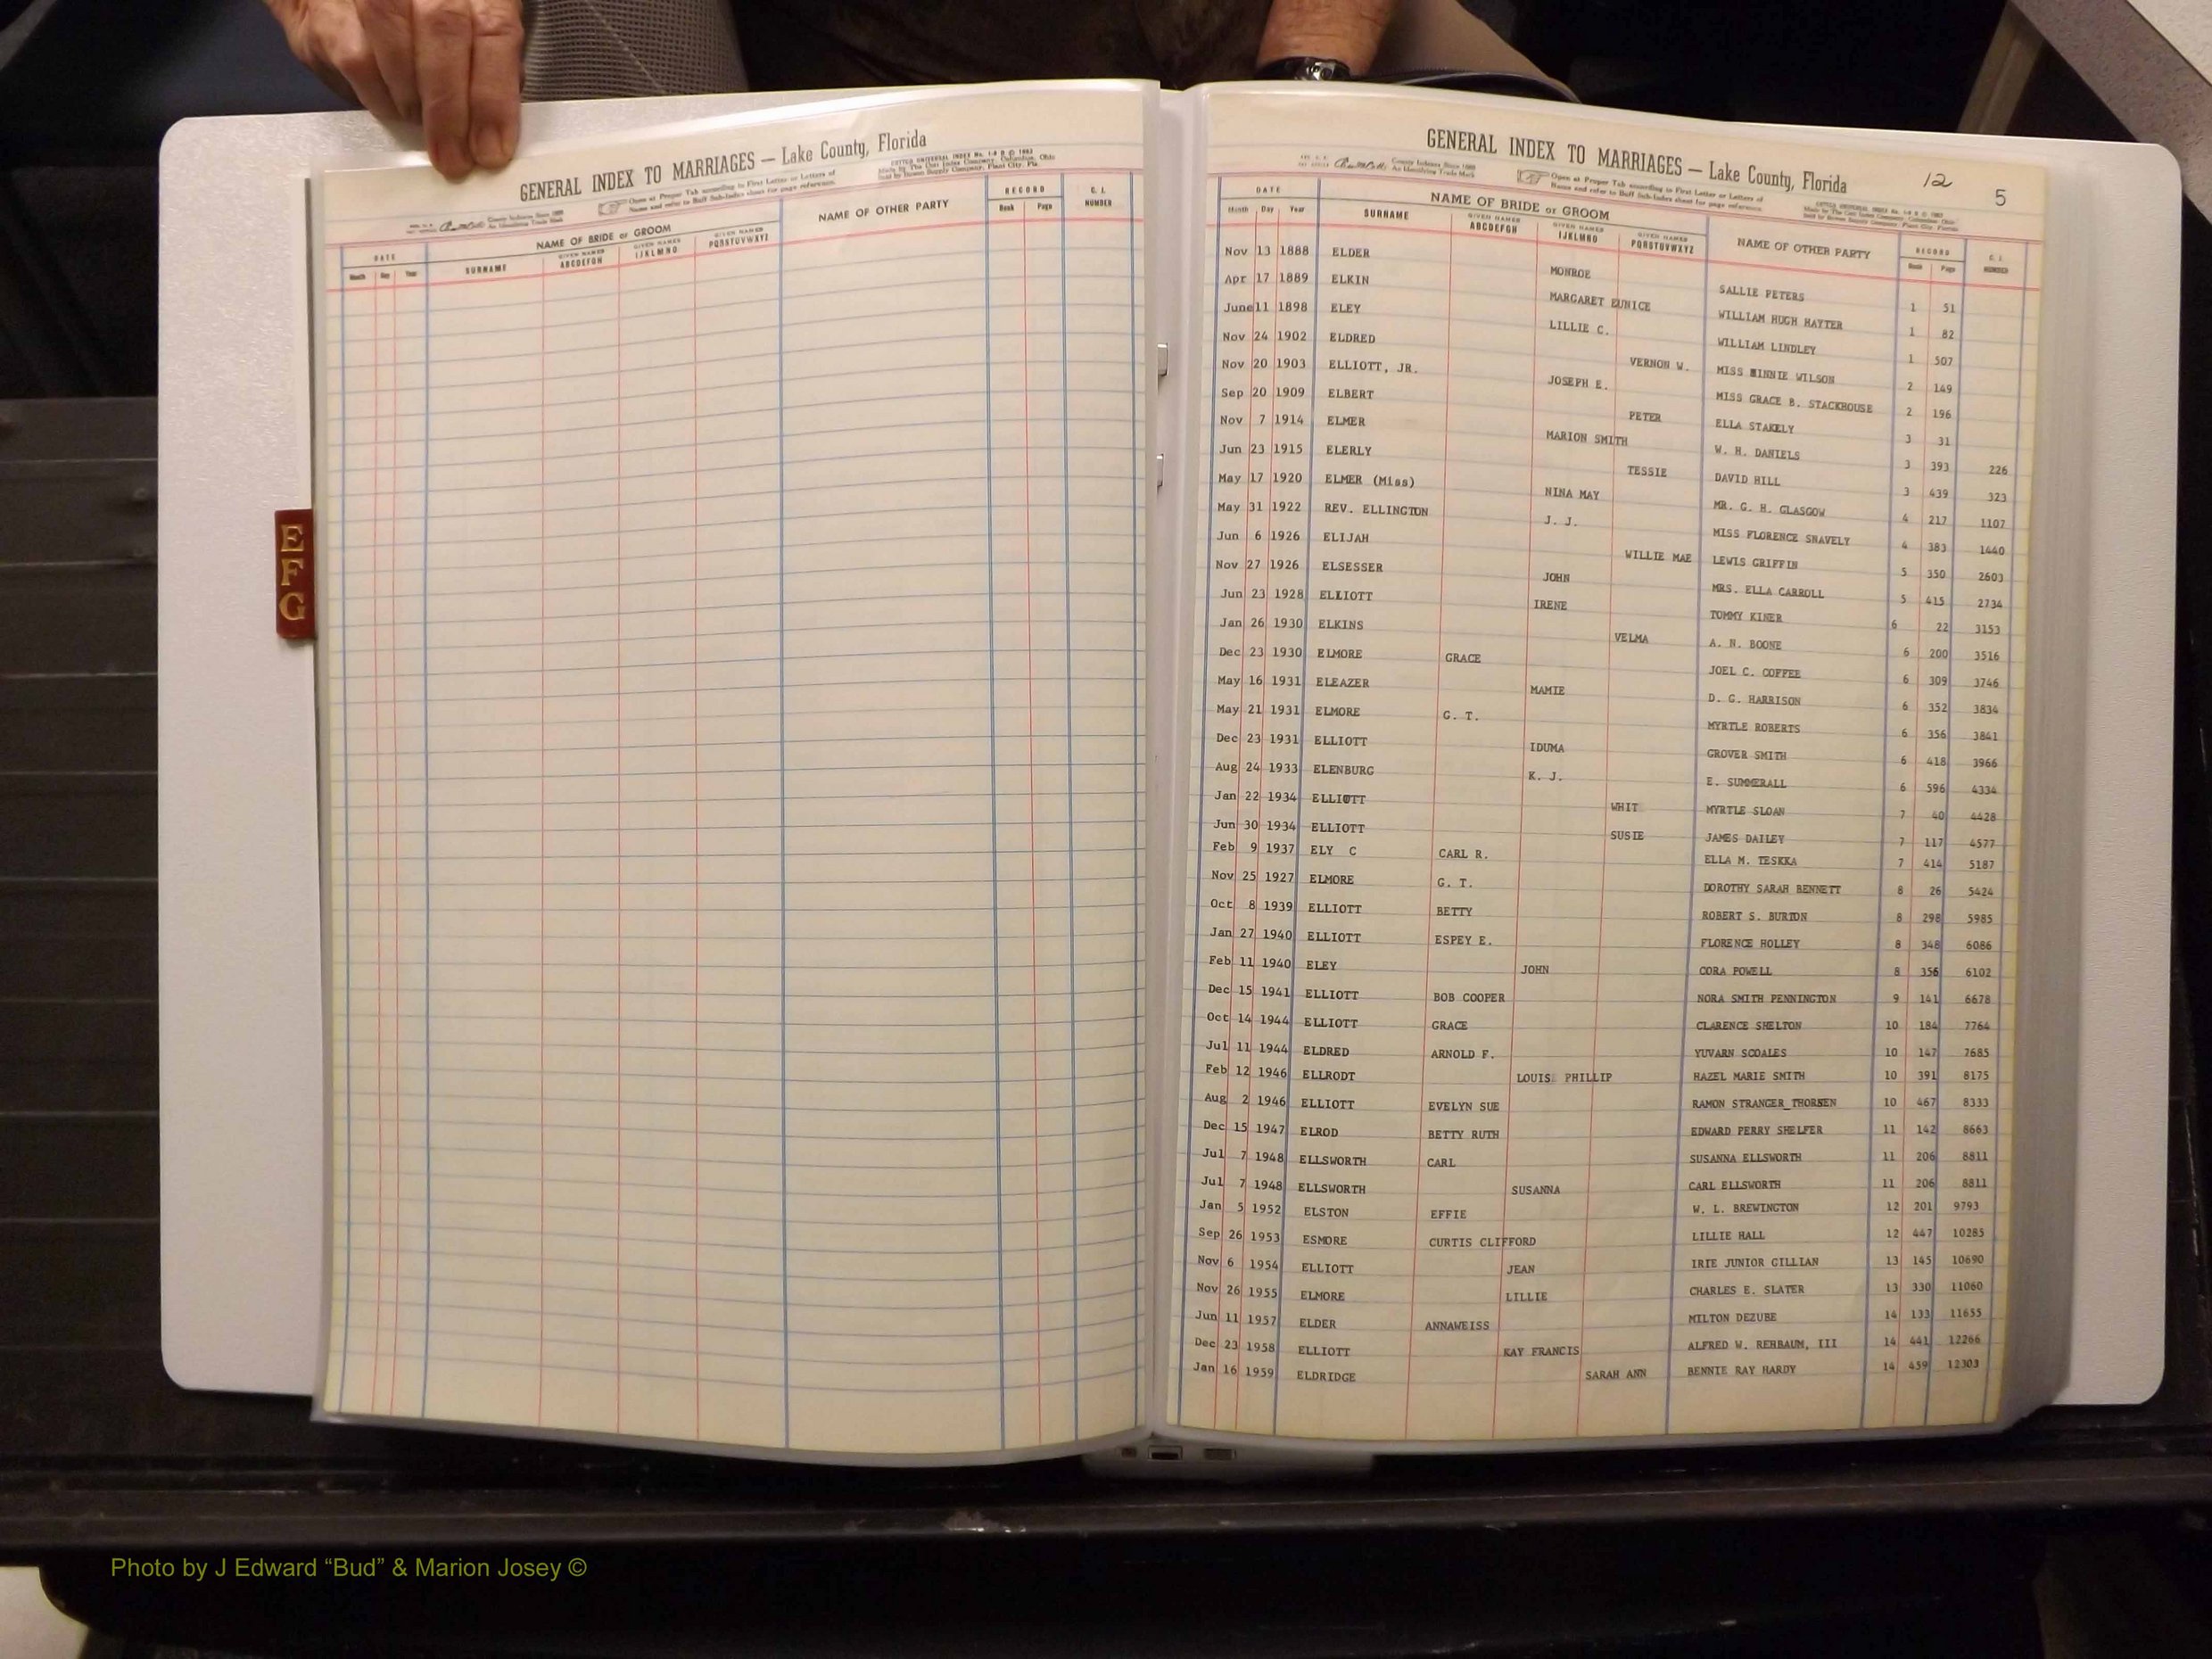 GENERAL INDEX TO MARRIAGES — Lake County, Florida
COTT'S UNIVERSAL INDEX
Made by The Cott Index Company, Columbus, Ohio
Sold by Rowen Supply Company, Plant City, Fla.
County Indexes Since 1888
An Identifying Trade Mark
Open at Proper Tab according to First Letter or Letters of
Name and refer to Buff Sub-Index sheet for page reference.
DATE NAME OF BRIDE or GROOM NAME OF OTHER PARTY RECORD C. I. NUMBER
Month Day Year SURNAME GIVEN NAMES ABCDEFGH GIVEN NAMES IJKLMNO GIVEN NAMES PQRSTUVWXYZ Book Page
E
F
G
GENERAL INDEX TO MARRIAGES — Lake County, Florida 12 5
County Indexes Since 1888
An Identifying Trade Mark
Open at Proper Tab according to First Letter or Letters of
Name and refer to Buff Sub-Index sheet for page reference.
DATE NAME OF BRIDE or GROOM NAME OF OTHER PARTY RECORD C. I. NUMBER
Month Day Year SURNAME GIVEN NAMES ABCDEFGH GIVEN NAMES IJKLMNO GIVEN NAMES PQRSTUVWXYZ Book Page
Nov 13 1888 ELDER MONROE SALLIE PETERS 1 51
Apr 17 1889 ELKIN MARGARET EUNICE WILLIAM HUGH HAYTER 1 82
June 11 1898 ELEY LILLIE C. WILLIAM LINDLEY 1 507
Nov 24 1902 ELDRED VERNON W. MISS MINNIE WILSON 2 149
Nov 20 1903 ELLIOTT, JR. JOSEPH E. MISS GRACE B. STACKHOUSE 2 196
Sep 20 1909 ELBERT PETER ELLA STAKELY 3 31
Nov 7 1914 ELMER MARION SMITH W. H. DANIELS 3 393 226
Jun 23 1915 ELERLY TESSIE DAVID HILL 3 439 323
May 17 1920 ELMER (Miss) NINA MAY MR. G. H. GLASGOW 4 217 1107
May 31 1922 REV. ELLINGTON J. J. MISS FLORENCE SNAVELY 4 383 1440
Jun 6 1926 ELIJAH WILLIE MAE LEWIS GRIFFIN 5 350 2603
Nov 27 1926 ELSESSER JOHN MRS. ELLA CARROLL 5 415 2734
Jun 23 1928 ELLIOTT IRENE TOMMY KINER 6 22 3153
Jan 26 1930 ELKINS VELMA A. N. BOONE 6 200 3516
Dec 23 1930 ELMORE GRACE JOEL C. COFFEE 6 309 3746
May 16 1931 ELEAZER MAMIE D. G. HARRISON 6 352 3834
May 21 1931 ELMORE G. T. MYRTLE ROBERTS 6 356 3841
Dec 23 1931 ELLIOTT IDUMA GROVER SMITH 6 418 3966
Aug 24 1933 ELENBURG K. J. E. SUMMERALL 6 596 4334
Jan 22 1934 ELLIOTT WHIT MYRTLE SLOAN 7 40 4428
Jun 30 1934 ELLIOTT SUSIE JAMES DAILEY 7 117 4577
Feb 9 1937 ELY C CARL R. ELLA M. TESKKA 7 414 5187
Nov 25 1927 ELMORE G. T. DOROTHY SARAH BENNETT 8 26 5424
Oct 8 1939 ELLIOTT BETTY ROBERT S. BURTON 8 298 5985
Jan 27 1940 ELLIOTT ESPEY E. FLORENCE HOLLEY 8 348 6086
Feb 11 1940 ELEY JOHN CORA POWELL 8 356 6102
Dec 15 1941 ELLIOTT BOB COOPER NORA SMITH PENNINGTON 9 141 6678
Oct 14 1944 ELLIOTT GRACE CLARENCE SHELTON 10 184 7764
Jul 11 1944 ELDRED ARNOLD F. YUVARN SCOALES 10 147 7685
Feb 12 1946 ELLRODT LOUIS PHILLIP HAZEL MARIE SMITH 10 391 8175
Aug 2 1946 ELLIOTT EVELYN SUE RAMON STRANGER THORSEN 10 467 8333
Dec 15 1947 ELROD BETTY RUTH EDWARD PERRY SHELFER 11 142 8663
Jul 7 1948 ELLSWORTH CARL SUSANNA ELLSWORTH 11 206 8811
Jul 7 1948 ELLSWORTH SUSANNA CARL ELLSWORTH 11 206 8811
Jan 5 1952 ELSTON EFFIE W. L. BREWINGTON 12 201 9793
Sep 26 1953 ESMORE CURTIS CLIFFORD LILLIE HALL 12 447 10285
Nov 6 1954 ELLIOTT JEAN IRIE JUNIOR GILLIAN 13 145 10690
Nov 26 1955 ELMORE LILLIE CHARLES E. SLATER 13 330 11060
Jun 11 1957 ELDER ANNAWEISS MILTON DEZUBE 14 133 11655
Dec 23 1958 ELLIOTT KAY FRANCIS ALFRED W. REHBAUM, III 14 441 12266
Jan 16 1959 ELDRIDGE SARAH ANN BENNIE RAY HARDY 14 459 12303
Photo by J Edward “Bud” & Marion Josey ©